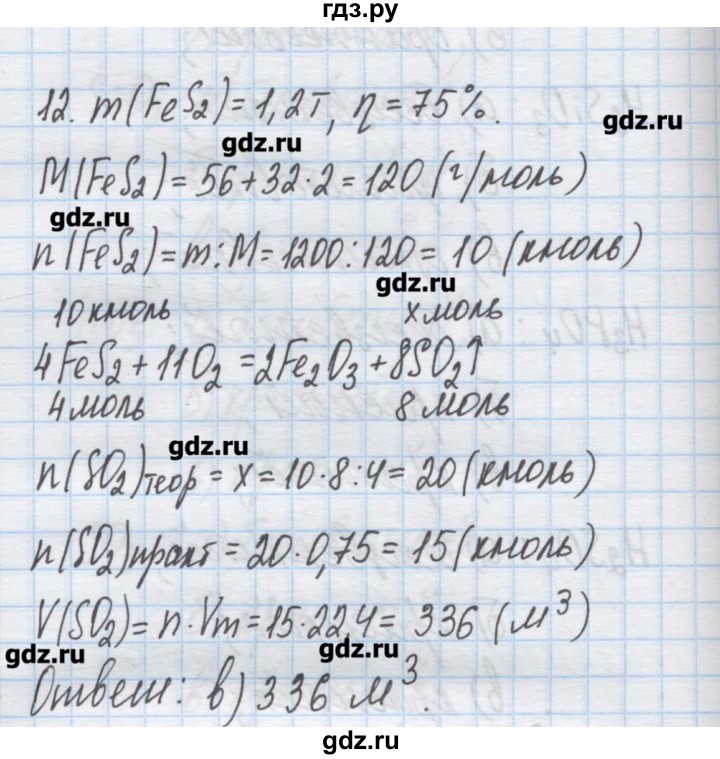 гдз.ру
12. m(FeS₂)=1,2т, η=75%.
gdz.ru
gdz.ru
M(FeS₂)=56+32·2=120(г/моль)
gdz.ru
n(FeS₂)=m:M=1200:120=10(кмоль)
gdz.ru
10кмоль xмоль
4FeS₂+11O₂=2Fe₂O₃+8SO₂↑
4моль 8моль
gdz.ru
n(SO₂)теор=x=10·8:4=20(кмоль)
gdz.ru
n(SO₂)практ=20·0,75=15(кмоль)
V(SO₂)=n·Vm=15·22,4=336(м³)
gdz.ru
gdz.ru
Ответ: в)336 м³.
gdz.ru